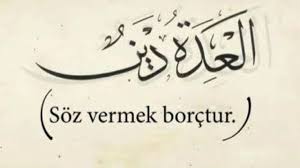 العدة دين
(Söz vermek borçtur.)